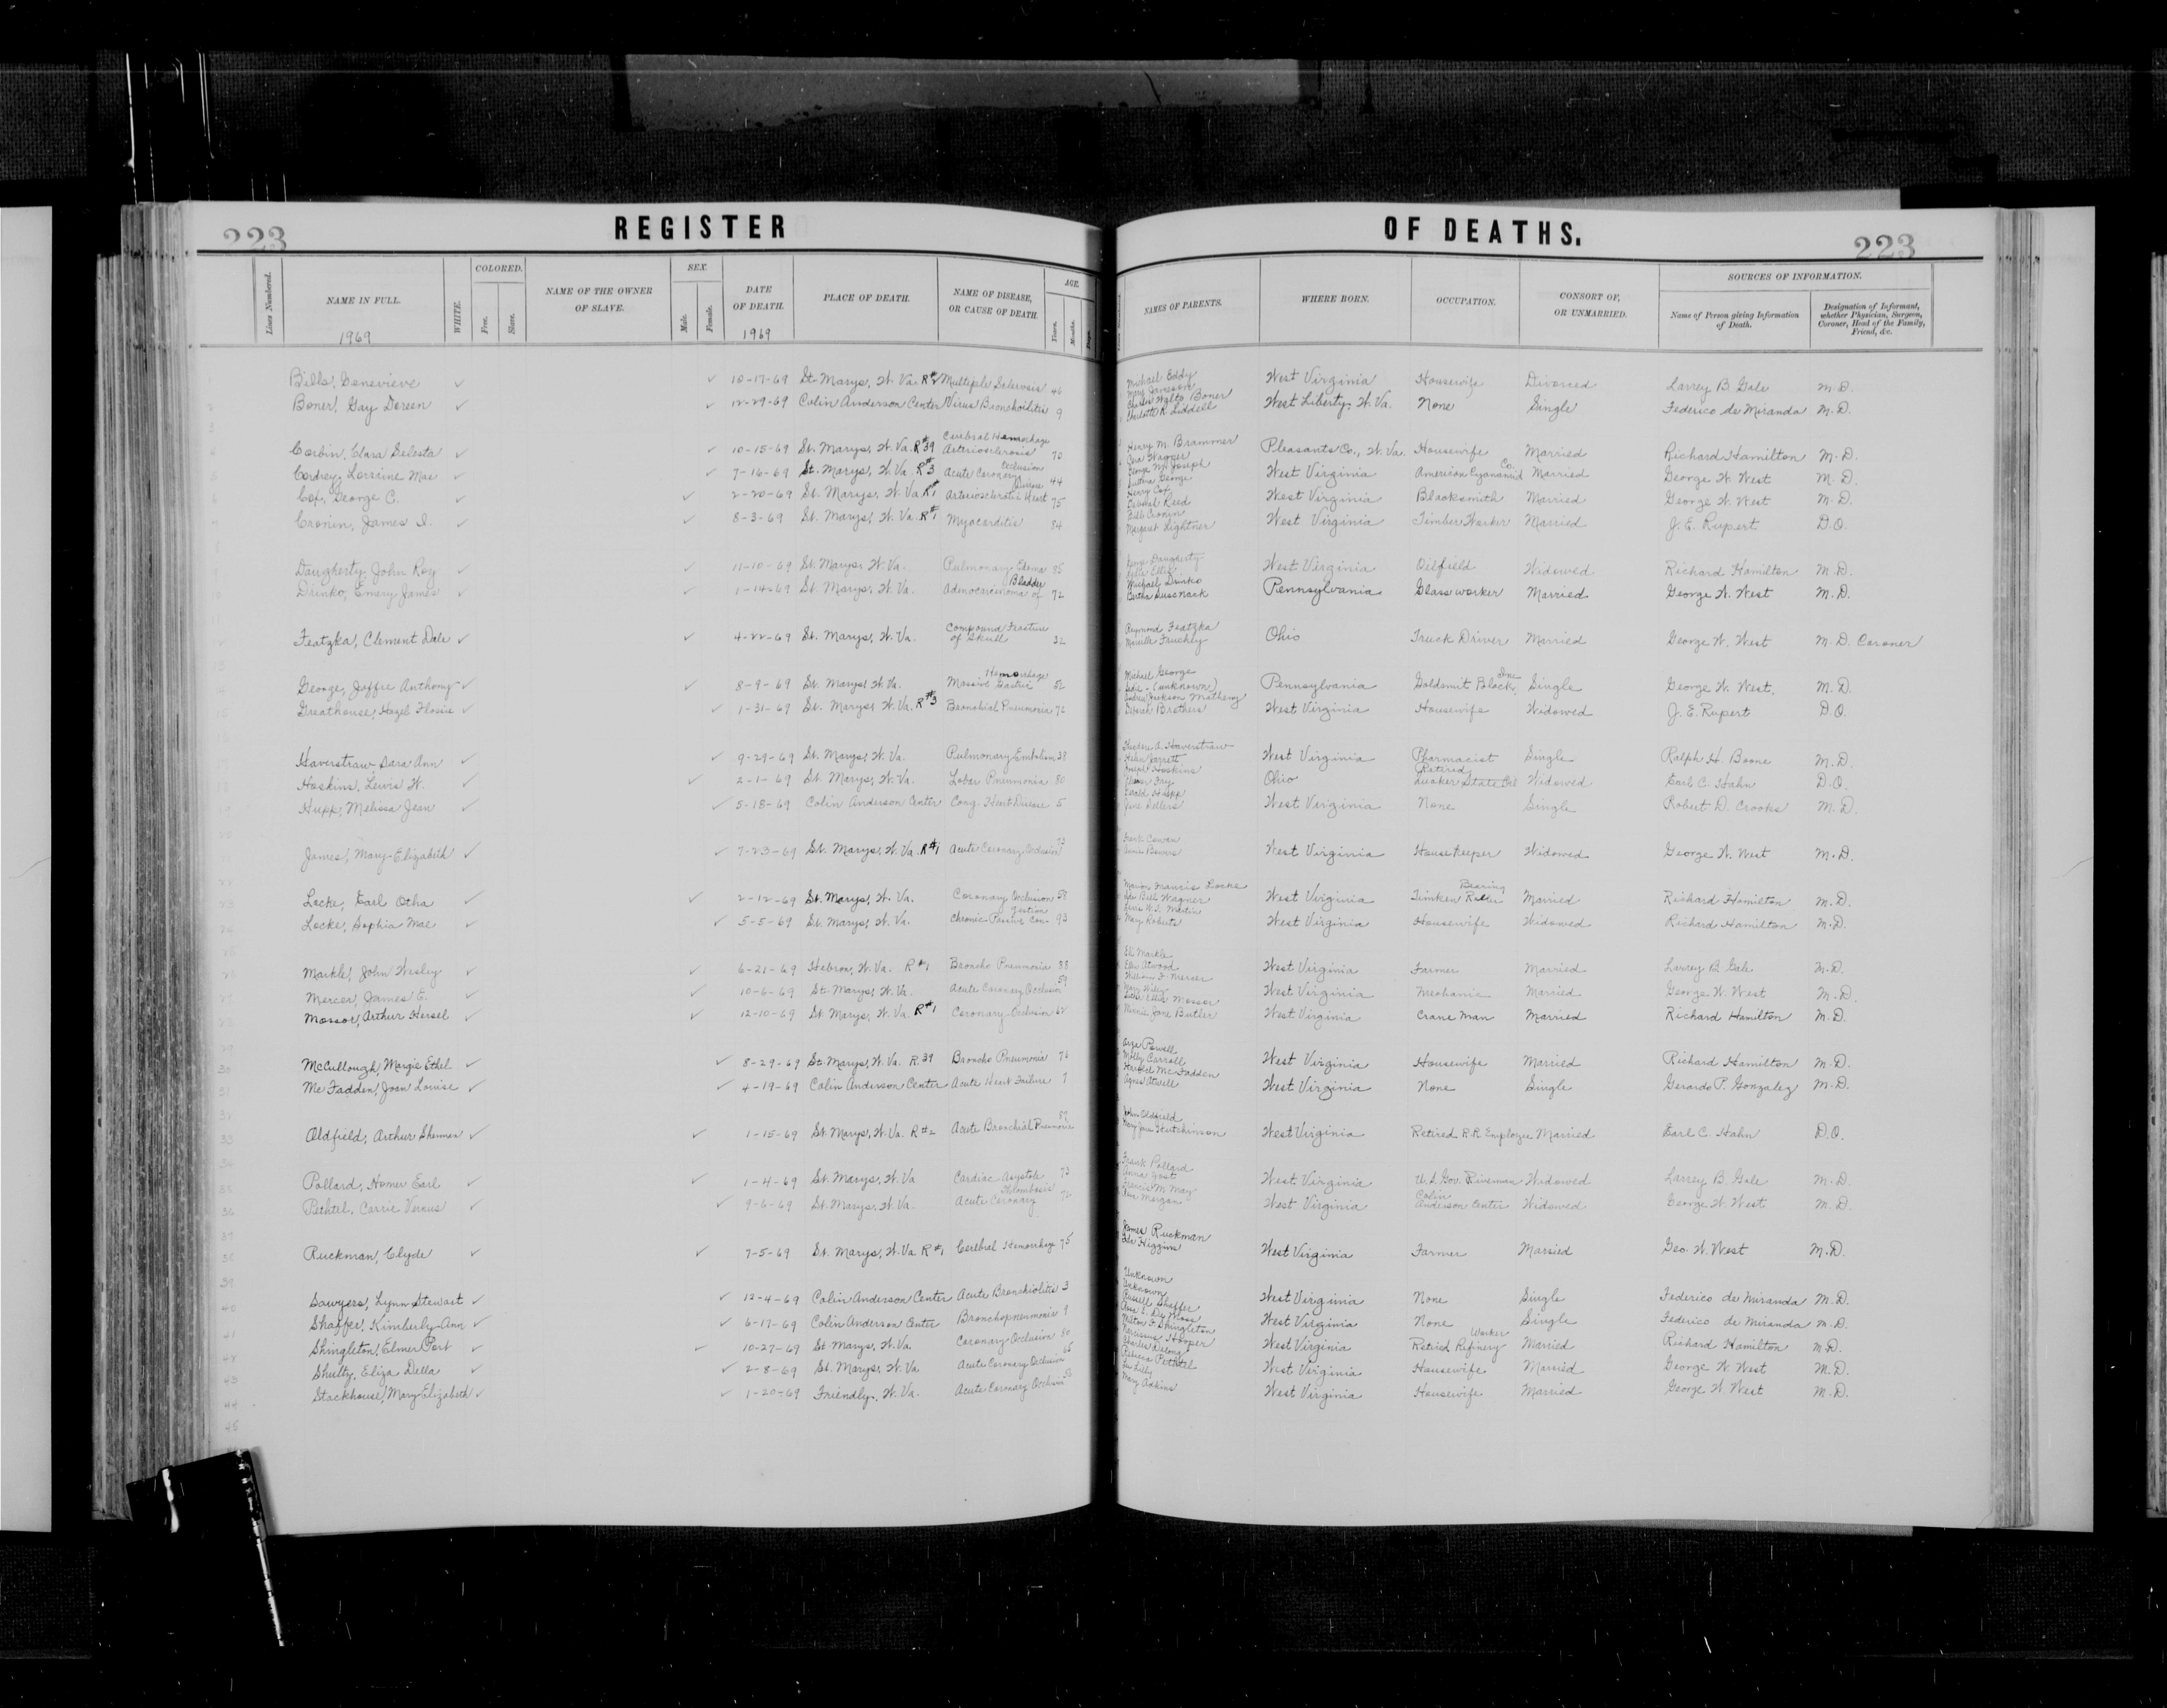 223 REGISTER OF DEATHS. 223
Lines Numbered. NAME IN FULL. WHITE. COLORED. Free. Slave. NAME OF THE OWNER OF SLAVE. SEX. Male. Female. DATE OF DEATH. PLACE OF DEATH. NAME OF DISEASE, OR CAUSE OF DEATH. AGE. Years. Months. Days. NAMES OF PARENTS. WHERE BORN. OCCUPATION. CONSORT OF, OR UNMARRIED. SOURCES OF INFORMATION. Name of Person giving Information of Death. Designation of Informant, whether Physician, Surgeon, Coroner, Head of the Family, Friend, &c.
1969 1969
Bills, Genevieve ✓ ✓ 10-17-69 St. Marys, W. Va. R#2 Multiple Sclerosis 46 Michael Eddy Mary Jameson West Virginia Housewife Divorced Larrey B. Gale M.D.
Boner, Gay Doreen ✓ ✓ 12-29-69 Colin Anderson Center Virus Bronchoilitis 9 Charles Walto Boner Charlotte R. Liddell West Liberty, W. Va. None Single Federico de Miranda M.D.
Corbin, Clara Selesta ✓ ✓ 10-15-69 St. Marys, W. Va. R#39 Cerebral Hemorrhage Arteriosclerosis 70 Henry M. Brammer Cora Wagner Pleasants Co., W. Va. Housewife Married Richard Hamilton M.D.
Cordrey, Lorraine Mae ✓ ✓ 7-16-69 St. Marys, W. Va. R#3 Acute Coronary Occlusion 44 George Joseph George West Virginia American Cyanamid Co. Married George W. West M.D.
Cox, George C. ✓ ✓ 2-20-69 St. Marys, W. Va. R#1 Arteriosclerotic Heart Disease 75 Henry Cox Reed West Virginia Blacksmith Married George W. West M.D.
Cronin, James I. ✓ ✓ 8-3-69 St. Marys, W. Va. R#1 Myocarditis 84 Cronin Margaret Lightner West Virginia Timber Worker Married J. E. Rupert D.O.
Daugherty, John Roy ✓ ✓ 11-10-69 St. Marys, W. Va. Pulmonary Edema 85 Daugherty Ellis West Virginia Oilfield Widowed Richard Hamilton M.D.
Drinko, Emery James ✓ ✓ 1-14-69 St. Marys, W. Va. Adenocarcinoma of Bladder 72 Michael Drinko Bertha Pennsylvania Glass worker Married George W. West M.D.
Featzka, Clement Dale ✓ ✓ 4-22-69 St. Marys, W. Va. Compound Fracture of Skull 32 Raymond Featzka Ohio Truck Driver Married George W. West M.D. Coroner
George, Joffre Anthony ✓ ✓ 8-9-69 St. Marys, W. Va. Massive Gastric Hemorrhage 52 Michael George Sadie - (unknown) Pennsylvania Goldsmit Black, Inc. Single George W. West, M.D.
Greathouse, Hazel Flossie ✓ ✓ 1-31-69 St. Marys, W. Va. R#3 Bronchial Pneumonia 72 Andrew Jackson Matheny Deborah Brothers West Virginia Housewife Widowed J. E. Rupert D.O.
Haverstraw Sara Ann ✓ ✓ 9-29-69 St. Marys, W. Va. Pulmonary Embolism 38 Theodore A. Haverstraw Helen Jarrett West Virginia Pharmacist Single Ralph H. Boone M.D.
Hoskins, Lewis W. ✓ ✓ 2-1-69 St. Marys, W. Va. Lobar Pneumonia 80 Hoskins Fry Ohio Retired Quaker State Oil Widowed Earl C. Hahn D.O.
Hupp, Melissa Jean ✓ ✓ 5-18-69 Colin Anderson Center Cong. Heart Disease 5 Gerald Hupp Jane Sellers West Virginia None Single Robert D. Crooks M.D.
James, Mary Elizabeth ✓ ✓ 7-23-69 St. Marys, W. Va. R#1 Acute Coronary Occlusion 73 Frank Cowan Annie Bowers West Virginia Housekeeper Widowed George W. West M.D.
Locke, Earl Otha ✓ ✓ 2-12-69 St. Marys, W. Va. Coronary Occlusion 58 Marion Francis Locke Belle Wagner West Virginia Timken Roller Bearing Married Richard Hamilton M.D.
Locke, Sophia Mae ✓ ✓ 5-5-69 St. Marys, W. Va. Chronic Passive Congestion 93 Martin Mary Roberts West Virginia Housewife Widowed Richard Hamilton M.D.
Markle, John Wesley ✓ ✓ 6-21-69 Hebron, W. Va. R#1 Broncho Pneumonia 88 Eli Markle Ellen Atwood West Virginia Farmer Married Larrey B. Gale M.D.
Mercer, James E. ✓ ✓ 10-6-69 St. Marys, W. Va. Acute Coronary Occlusion 59 William F. Mercer Mary Wiley West Virginia Mechanic Married George W. West M.D.
Mossor, Arthur Hersel ✓ ✓ 12-10-69 St. Marys, W. Va. R#1 Coronary Occlusion 62 Mossor Minnie Jane Butler West Virginia Crane Man Married Richard Hamilton M.D.
McCullough, Margie Ethel ✓ ✓ 8-29-69 St. Marys, W. Va. R.39 Broncho Pneumonia 76 Arza Powell Molly Carroll West Virginia Housewife Married Richard Hamilton M.D.
McFadden, Joan Louise ✓ ✓ 4-19-69 Colin Anderson Center Acute Heart Failure 7 McFadden Agnes Atwell West Virginia None Single Gerardo P. Gonzalez M.D.
Oldfield, Arthur Sherman ✓ ✓ 1-15-69 St. Marys, W. Va. R#2 Acute Bronchial Pneumonia 82 John Oldfield Mary Jane Hutchinson West Virginia Retired R.R. Employee Married Earl C. Hahn D.O.
Pollard, Homer Earl ✓ ✓ 1-4-69 St. Marys, W. Va Cardiac Asystole 73 Frank Pollard Anna Yost West Virginia U.S. Gov. Riverman Widowed Larrey B. Gale M.D.
Pethtel, Carrie Vernus ✓ ✓ 9-6-69 St. Marys, W. Va. Acute Coronary Thrombosis 72 Francis M. May Morgan West Virginia Colin Anderson Center Widowed George W. West M.D.
Ruckman, Clyde ✓ ✓ 7-5-69 St. Marys, W. Va. R#1 Cerebral Hemorrhage 75 James Ruckman Ida Higgins West Virginia Farmer Married Geo. W. West M.D.
Sawyers, Lynn Stewart ✓ ✓ 12-4-69 Colin Anderson Center Acute Bronchiolitis 3 Unknown Unknown West Virginia None Single Federico de Miranda M.D.
Shaffer, Kimberly Ann ✓ ✓ 6-17-69 Colin Anderson Center Bronchopneumonia 9 Russell Shaffer De Moss West Virginia None Single Federico de Miranda M.D.
Shingleton, Elmer Port ✓ ✓ 10-27-69 St. Marys, W. Va. Coronary Occlusion 80 Milton F. Shingleton Narcissus Hooper West Virginia Retired Refinery Worker Married Richard Hamilton M.D.
Shulty, Eliza Della ✓ ✓ 2-8-69 St. Marys, W. Va Acute Coronary Occlusion 65 Charles Delong Rebecca Pethtel West Virginia Housewife Married George W. West M.D.
Stackhouse, Mary Elizabeth ✓ ✓ 1-20-69 Friendly, W. Va. Acute Coronary Occlusion Lilly Mary Adkins West Virginia Housewife Married George W. West M.D.